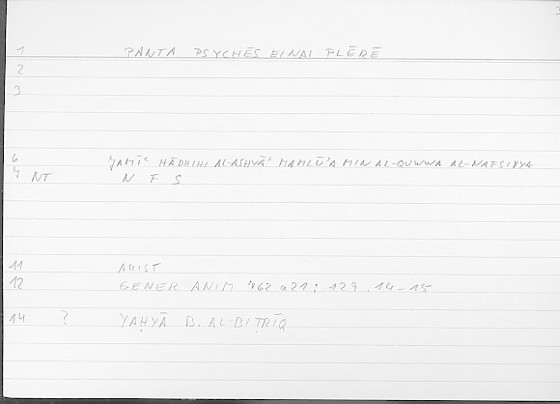 3
1 PANTA PSYCHĒS EINAI PLĒRĒ
2
3
6 JAMĪʿ HĀDHIHI AL-ASHYĀʾ MAMLŪʾA MIN AL-QUWWA AL-NAFSIYYA
7 NT N F S
11 ARIST
12 GENER ANIM 762 a21; 129.14-15
14 ? YAḤYĀ B. AL-BIṬRĪQ